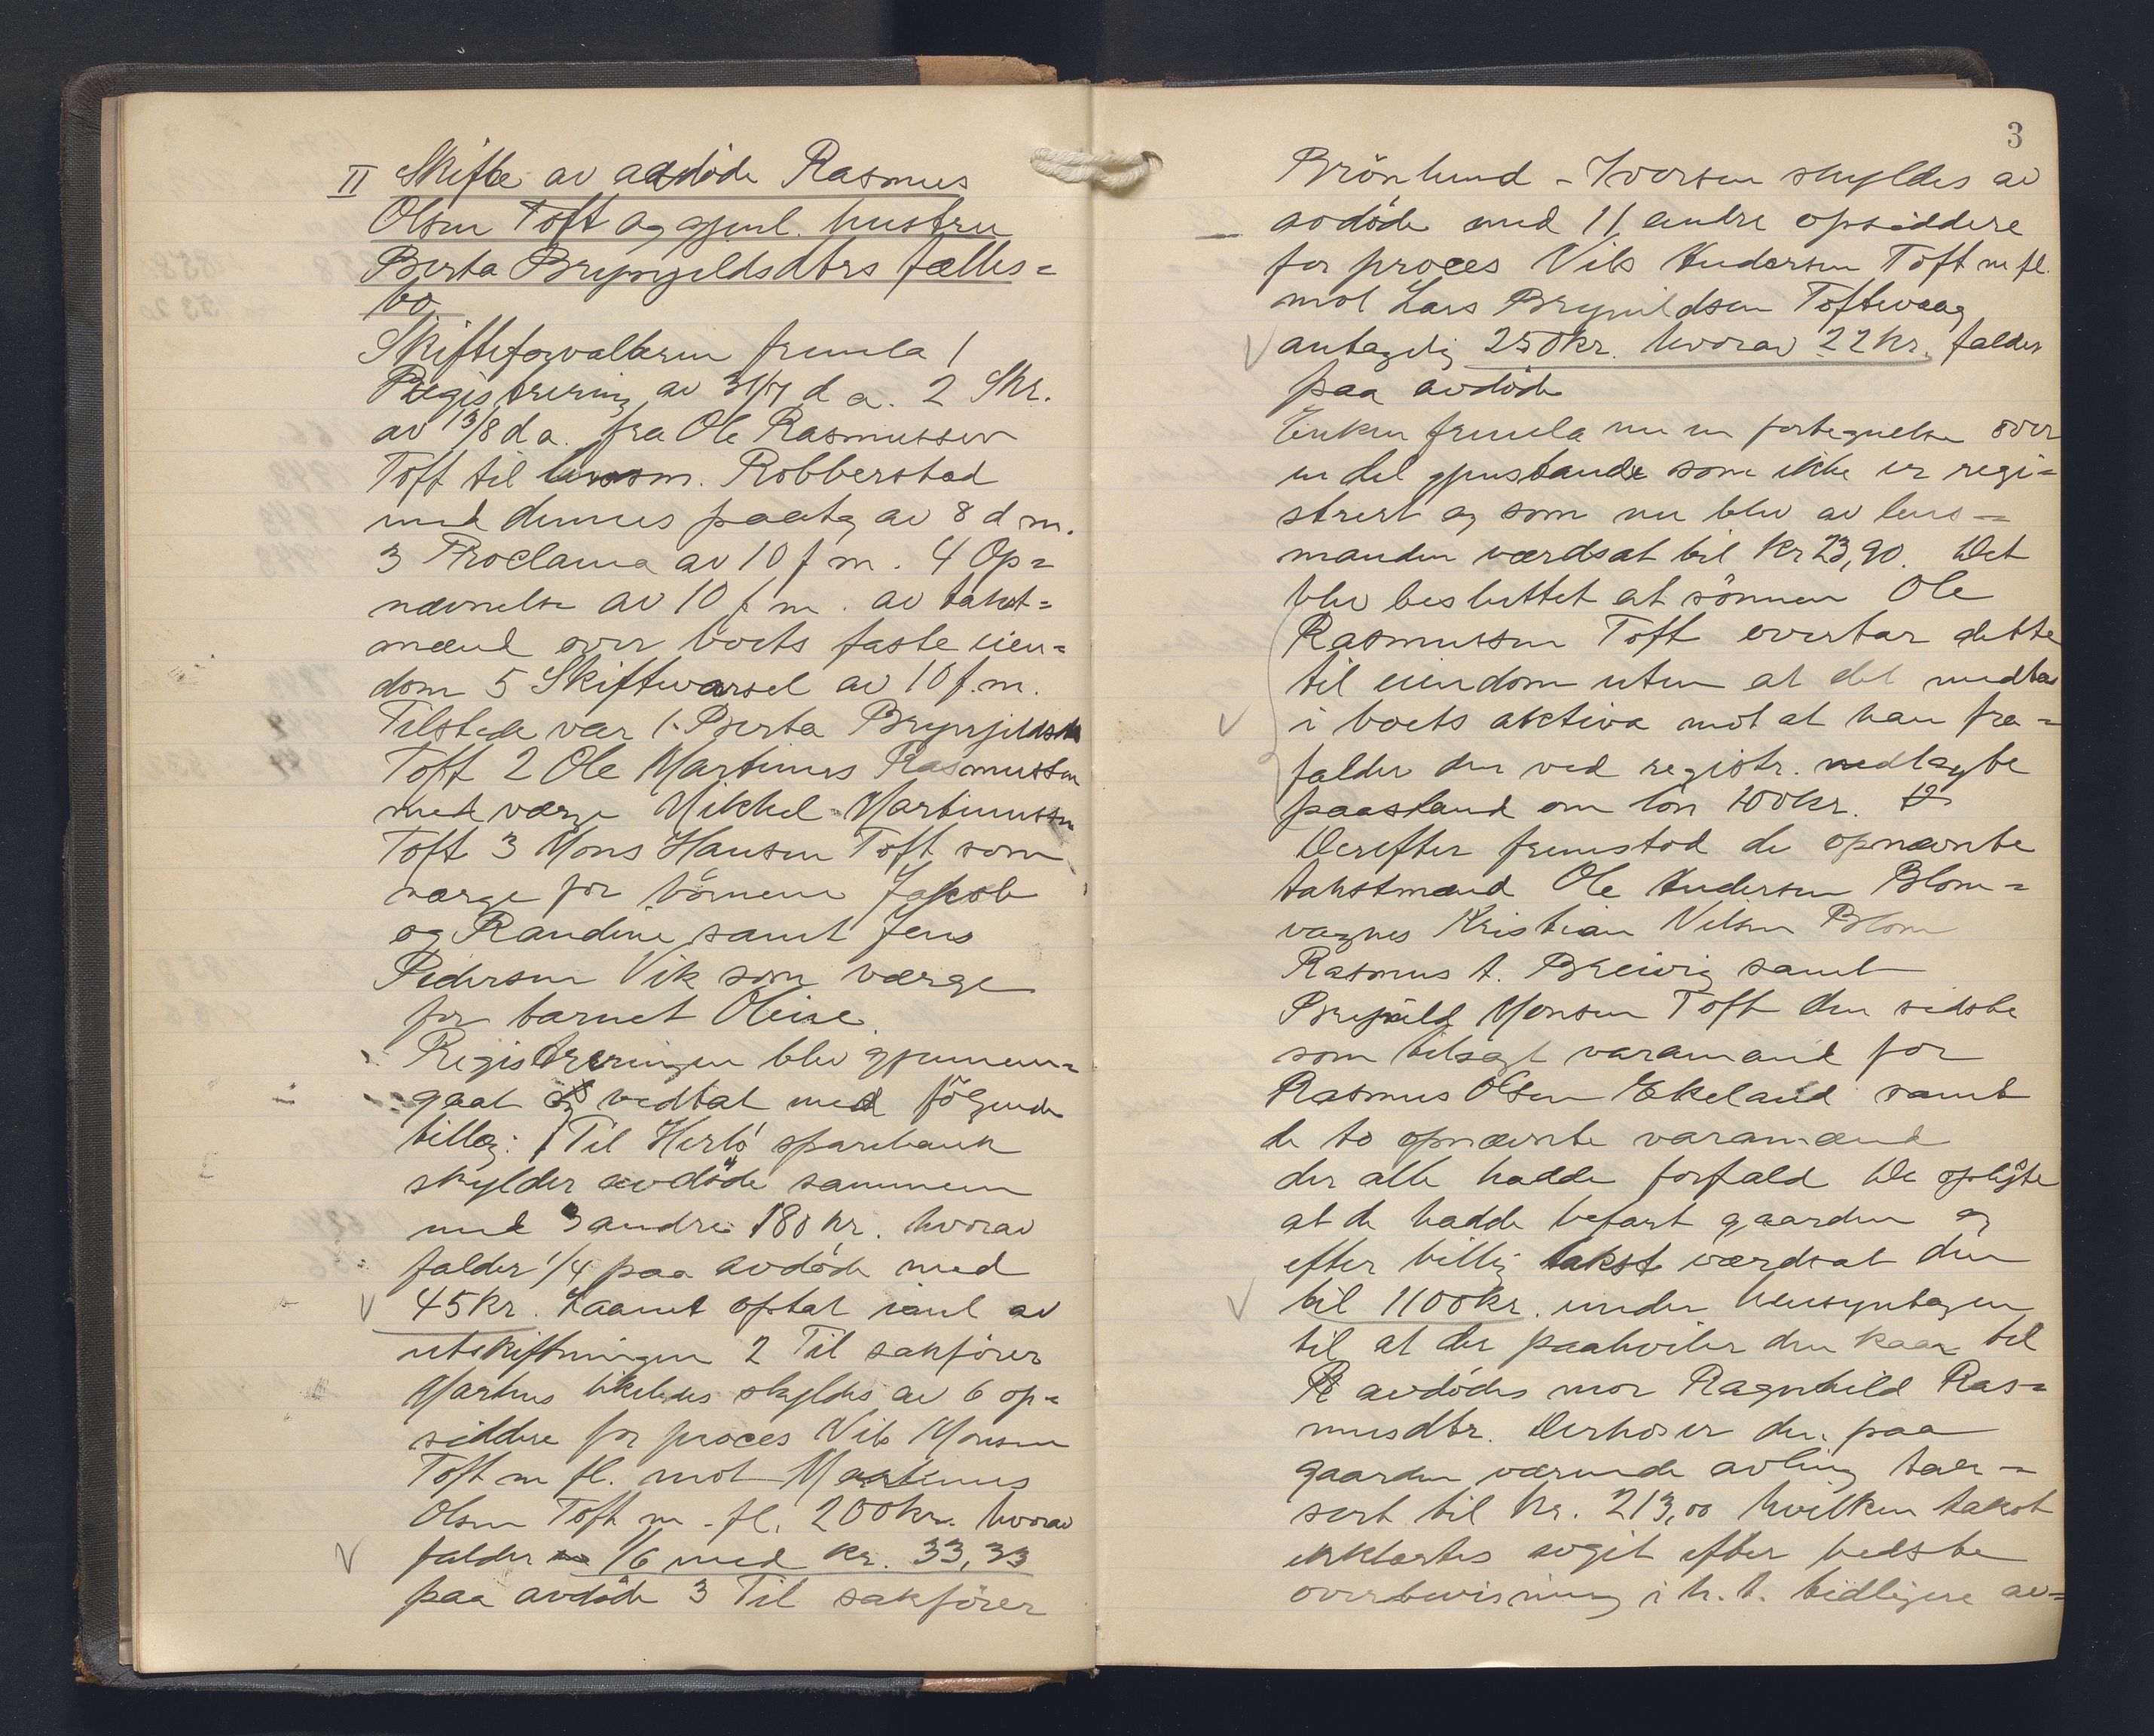 II Skifte av avdøde Rasmus
Olsen Toft og gjenl. hustru
Berta Brynjeldsdtrs fælles=
bo
Skifteforvalteren fremla 1
Registrering av 31/7 d a. 2 Skr.
av 13/8 d a. fra Ole Rasmussen
Toft til lensm. Robberstad
med dennes paateg av 8 d m.
3 Proclama av 10 f m. 4 Op=
nævnelse av 10 f m. av takst=
mænd over boets faste eien=
dom 5 Skiftevarsel av 10 f.m.
Tilstede var 1. Berta Brynjeldsdtr
Toft 2 Ole Martinus Rasmussen
med værge Mikkel Martinussen
Toft 3 Mons Hansen Toft som
værge for børnene Jakob
og Randine samt Jens
Pedersen Vik som værge
for barnet Oline.
Registreringen blev gjennem=
gaat og vedtat med følgende
tillæg: 1 Til Herlø sparebank
skylder avdøde sammen
med 3 andre 180 kr. hvorav
falder 1/4 paa avdøde med
45 kr. Laanet optat i anl av
utskiftningen 2 Til sakfører
Martens likeledes skyldes av 6 op=
siddere for proces Nils Monsen
Toft m fl. mot Martinus
Olsen Toft m. fl. 200 kr. hvorav
falder 1/6 med kr. 33,33
paa avdøde 3 Til sakfører
3
Brönlund - Iversen skyldes av
avdøde med 11 andre opsiddere
for proces Nils Andersen Toft m fl.
mot Lars Brynildsen Toftevaag
antagelig 250 kr. hvorav 22 kr. falder
paa avdøde
Enken fremla nu en fortegnelse over
en del gjenstande som ikke er regi=
strert og som nu blev av lens=
manden værdsat til kr 23,90. Det
blev besluttet at sønnen Ole
Rasmussen Toft overtar dette
til eiendom uten at det medtas
i boets aktiva mot at han fra=
falder den ved registr. nedlagte
paastand om løn 100 kr.
Derefter fremstod de opnævnte
takstmænd Ole Andersen Blom=
vagnes Kristian Nilsen Blom
Rasmus A. Breivig samt
Brynild Monsen Toft den sidste
som tilsagt varamand for
Rasmus Olsen Ekeland samt
de to opnævnte varamænd
der alle hadde forfald De oplyste
at de hadde befart gaarden og
efter billig takst værdsat den
til 1100 kr. under hensyntagen
til at der paahviler den kaar til
avdødes mor Ragnhild Ras=
musdtr. Derhos er den paa
gaarden værende avling tak=
sert til kr. 213,00 hvilken takst
erklærtes avgit efter bedste
overbevisning i h. t. tidligere av=